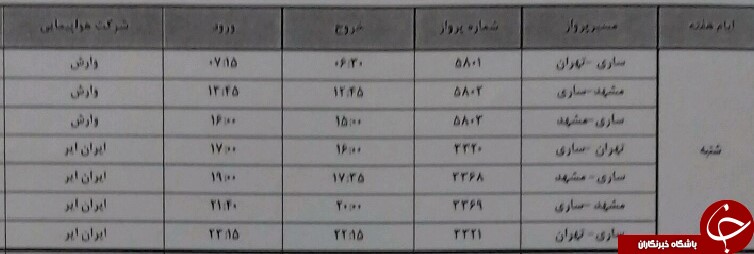 ایام هفته مسیرپرواز شماره پرواز خروج ورود شرکت هواپیمایی
ساری -تهران ۵۸۰۱ ۰۶:۳۰ ۰۷:۱۵ وارش
مشهد-ساری ۵۸۰۲ ۱۲:۴۵ ۱۳:۴۵ وارش
ساری-مشهد ۵۸۰۳ ۱۵:۰۰ ۱۶:۰۰ وارش
شنبه
تهران -ساری ۳۳۲۰ ۱۶:۰۰ ۱۷:۰۰ ایران ایر
ساری - مشهد ۳۳۶۸ ۱۷:۳۵ ۱۹:۰۰ ایران ایر
مشهد -ساری ۳۳۶۹ ۲۰:۰۰ ۲۱:۴۰ ایران ایر
ساری -تهران ۳۳۲۱ ۲۲:۱۵ ۲۳:۱۵ ایران ایر
باشگاه خبرنگاران